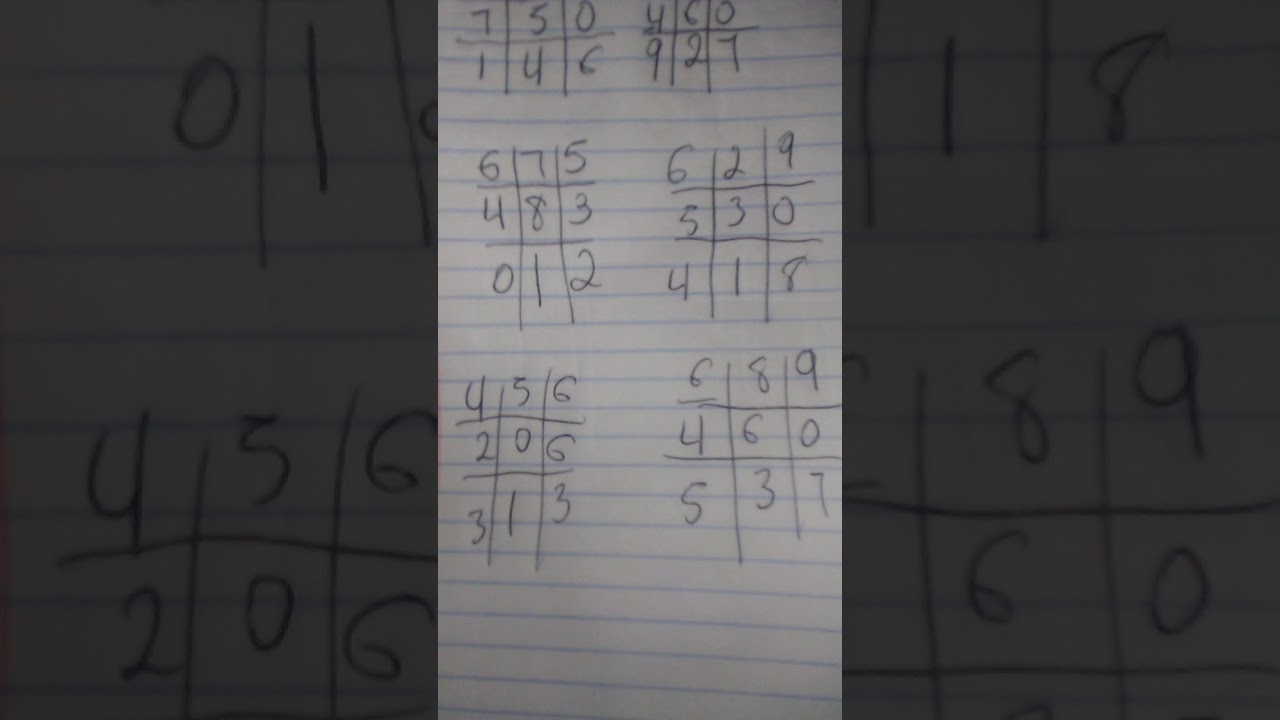 7 5 0
1 4 6
4 6 0
9 2 7
6 7 5
4 8 3
0 1 2
6 2 9
5 3 0
4 1 8
4 5 6
2 0 6
3 1 3
6 8 9
4 6 0
5 3 7